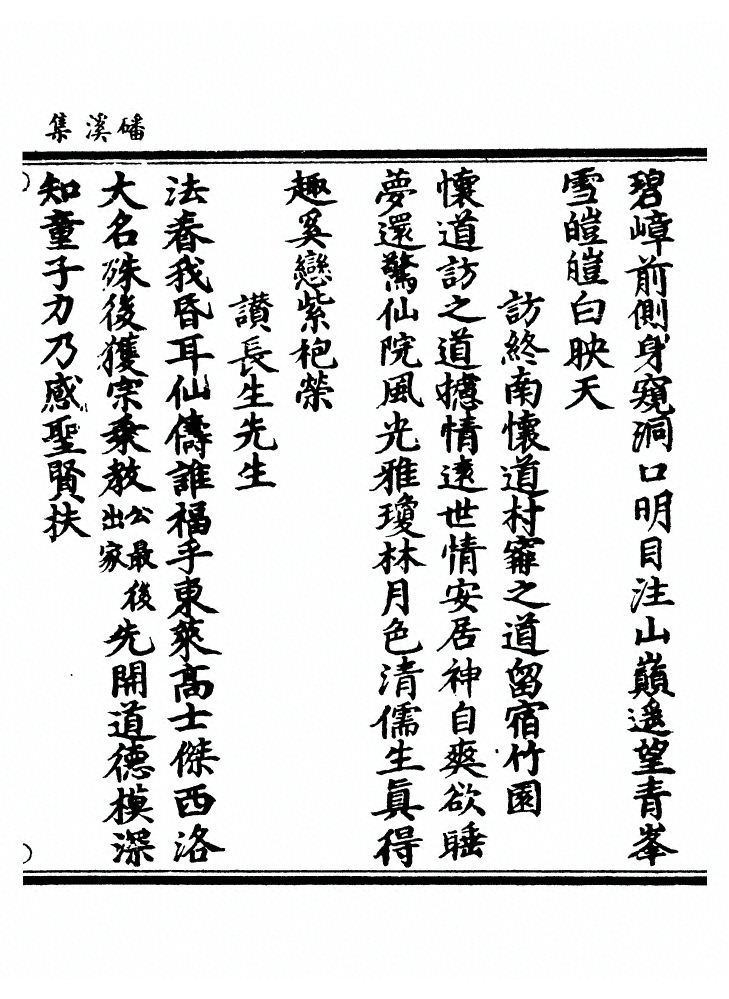 磻溪集
碧嶂前側身窺洞口明目注山巔遥望青峯
雪皚皚白映天
訪終南懷道村之道留宿竹園
懷道訪之道攄情遠世情安居神自爽欲睡
夢還驚仙院風光雅瓊林月色清儒生眞得
趣奚戀紫袍榮
讃長生先生
法眷我昏耳仙儔誰福乎東萊高士傑西洛
大名殊後獲宗乘教公最後出家先開道德模深
知童子力乃感聖賢扶